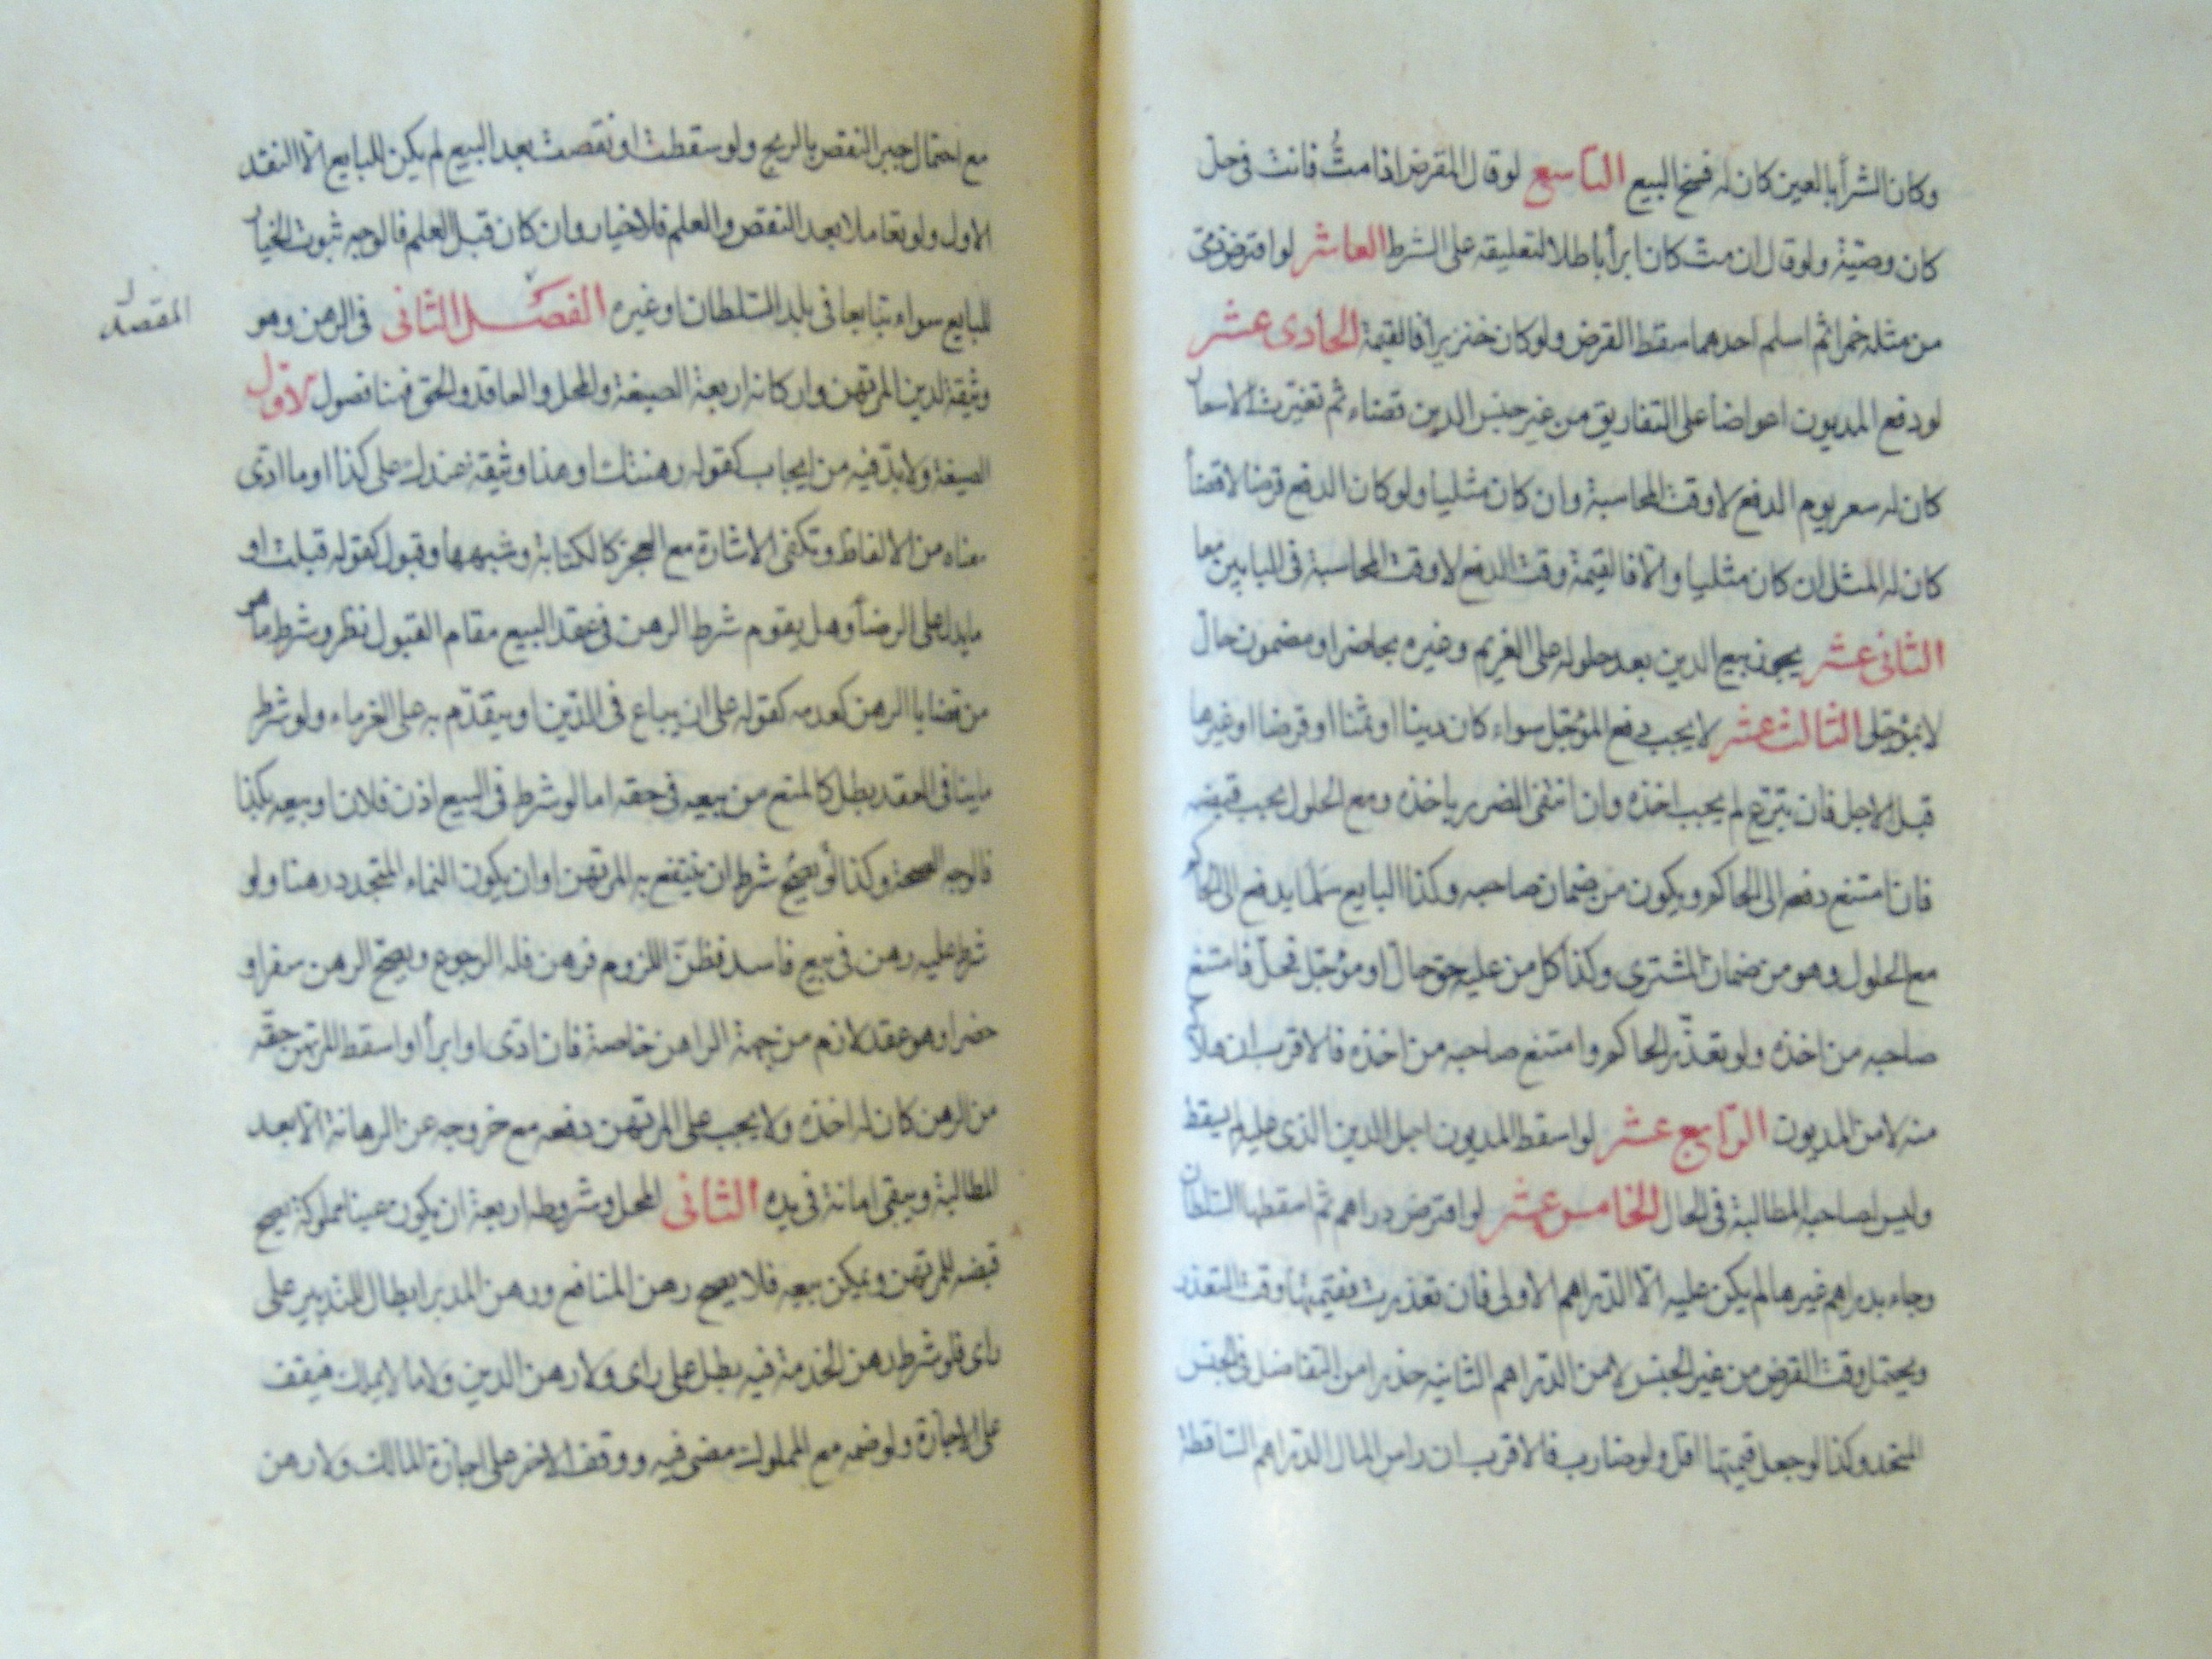 وكان الشرأ بالعين كان له فسخ البيع التاسع لو قال المقرض اذا متُّ فانت فى حل
كان وصية ولو قال ان مت كان ابرأ باطلا لتعليقه على الشرط العاشر لو اقترض ذمى
من مثله خمرا ثم اسلم احدهما سقط القرض ولو كان خنزيرا فالقيمة الحادى عشر
لو دفع المديون اعواضا على التفاريق من غير جنس الدين قضاء ثم تغيرت الاسعار
كان له سعر يوم الدفع لا وقت المحاسبة وان كان مثليا ولو كان الدفع قرضا لا قضأ
كان له المثل ان كان مثليا والا فالقيمة وقت الدفع لا وقت المحاسبة فى البابين معا
الثانى عشر يجوز بيع الدين بعد حلوله على الغريم وغيره بحاضر او مضمون حال
لا بمؤجل الثالث عشر لا يجب دفع المؤجل سواء كان دينا او ثمنا او قرضا او غيرها
قبل الاجل فان تبرع لم يجب اخذه وان انتفى الضرر باخذه ومع الحلول يجب قبضه
فان امتنع دفعه الى الحاكم ويكون من ضمان صاحبه وكذا البايع سلما يدفع الى الحاكم
مع الحلول وهو من ضمان المشترى وكذا كل من عليه حق حال او مؤجل فحل فامتنع
صاحبه من اخذه ولو تعذر الحاكم وامتنع صاحبه من اخذه فالاقرب ان هلاكه
منه لا من المديون الرابع عشر لو اسقط المديون اجل الدين الذى عليه لم يسقط
وليس لصاحبه المطالبة فى الحال الخامس عشر لو اقترض دراهم ثم اسقطها السلطان
وجاء بدراهم غيرها لم يكن عليه الا الدراهم الاولى فان تعذرت فقيمتها وقت التعذر
ويحتمل وقت القرض من غير الجنس لا من الدراهم الثانيه حذرا من التفاضل فى الجنس
المتحد وكذا لو جعل قيمتها اقل ولو ضارب فالاقرب ان راس المال الدراهم الساقطة
مع احتمال جبر النقص بالربح ولو سقطت او نقصت بعد البيع لم يكن للبايع الا النقد
الاول ولو تعاملا بعد النقص والعلم فلا خيار وان كان قبل العلم فالوجه ثبوت الخيار
للبايع سواء تبايعا فى بلد السلطان او غيره الفصل الثانى فى الرهن وهو
المقصد
وثيقة لدين المرتهن واركانه اربعة الصيغة والمحل والعاقد والحق فهنا فصول الاول
الصيغة ولا بد فيه من ايجاب كقوله رهنتك او هذا وثيقة عندك على كذا او ما ادى
معناه من الالفاظ وتكفى الاشارة مع العجز كالكتابة وشبهها وقبول كقوله قبلت او
ما يدل على الرضأ وهل يقوم شرط الرهن فى عقد البيع مقام القبول نظر وشرط ما هو
من قضايا الرهن كعدمه كقوله على ان يباع فى الدين او يتقدم به على الغرماء ولو شرط
ما ينافى العقد بطل كالمنع من بيعه فى حقه اما لو شرط فى البيع اذن فلان او بيعه بكذا
فالوجه الصحة وكذا لو يصح شرط ان ينتفع به المرتهن او ان يكون النماء المتجدد رهنا ولو
شرط عليه رهن فى بيع فاسد فظن اللزوم فرهن فله الرجوع ويصح الرهن سفرا و
حضرا وهو عقد لازم من جهة الراهن خاصة فان ادى او ابرأ او اسقط المرتهن حقه
من الرهن كان له اخذه ولا يجب على المرتهن دفعه مع خروجه عن الرهانة الا بعد
المطالبة ويبقى امانة فى يده الثانى المحل وشروطه اربعة ان يكون عينا مملوكة يصح
قبضه للمرتهن ويمكن بيعه فلا يصح رهن المنافع ورهن المدبر ابطال للتدبير على
راى فلو شرط رهن الخدمة فيه بطل على راى ولا رهن الدين ولا ما لا يملك فيقف
على الاجازة ولو ضمه مع المملوك مضى فيه ووقف الاخر على اجازة المالك ولا رهن